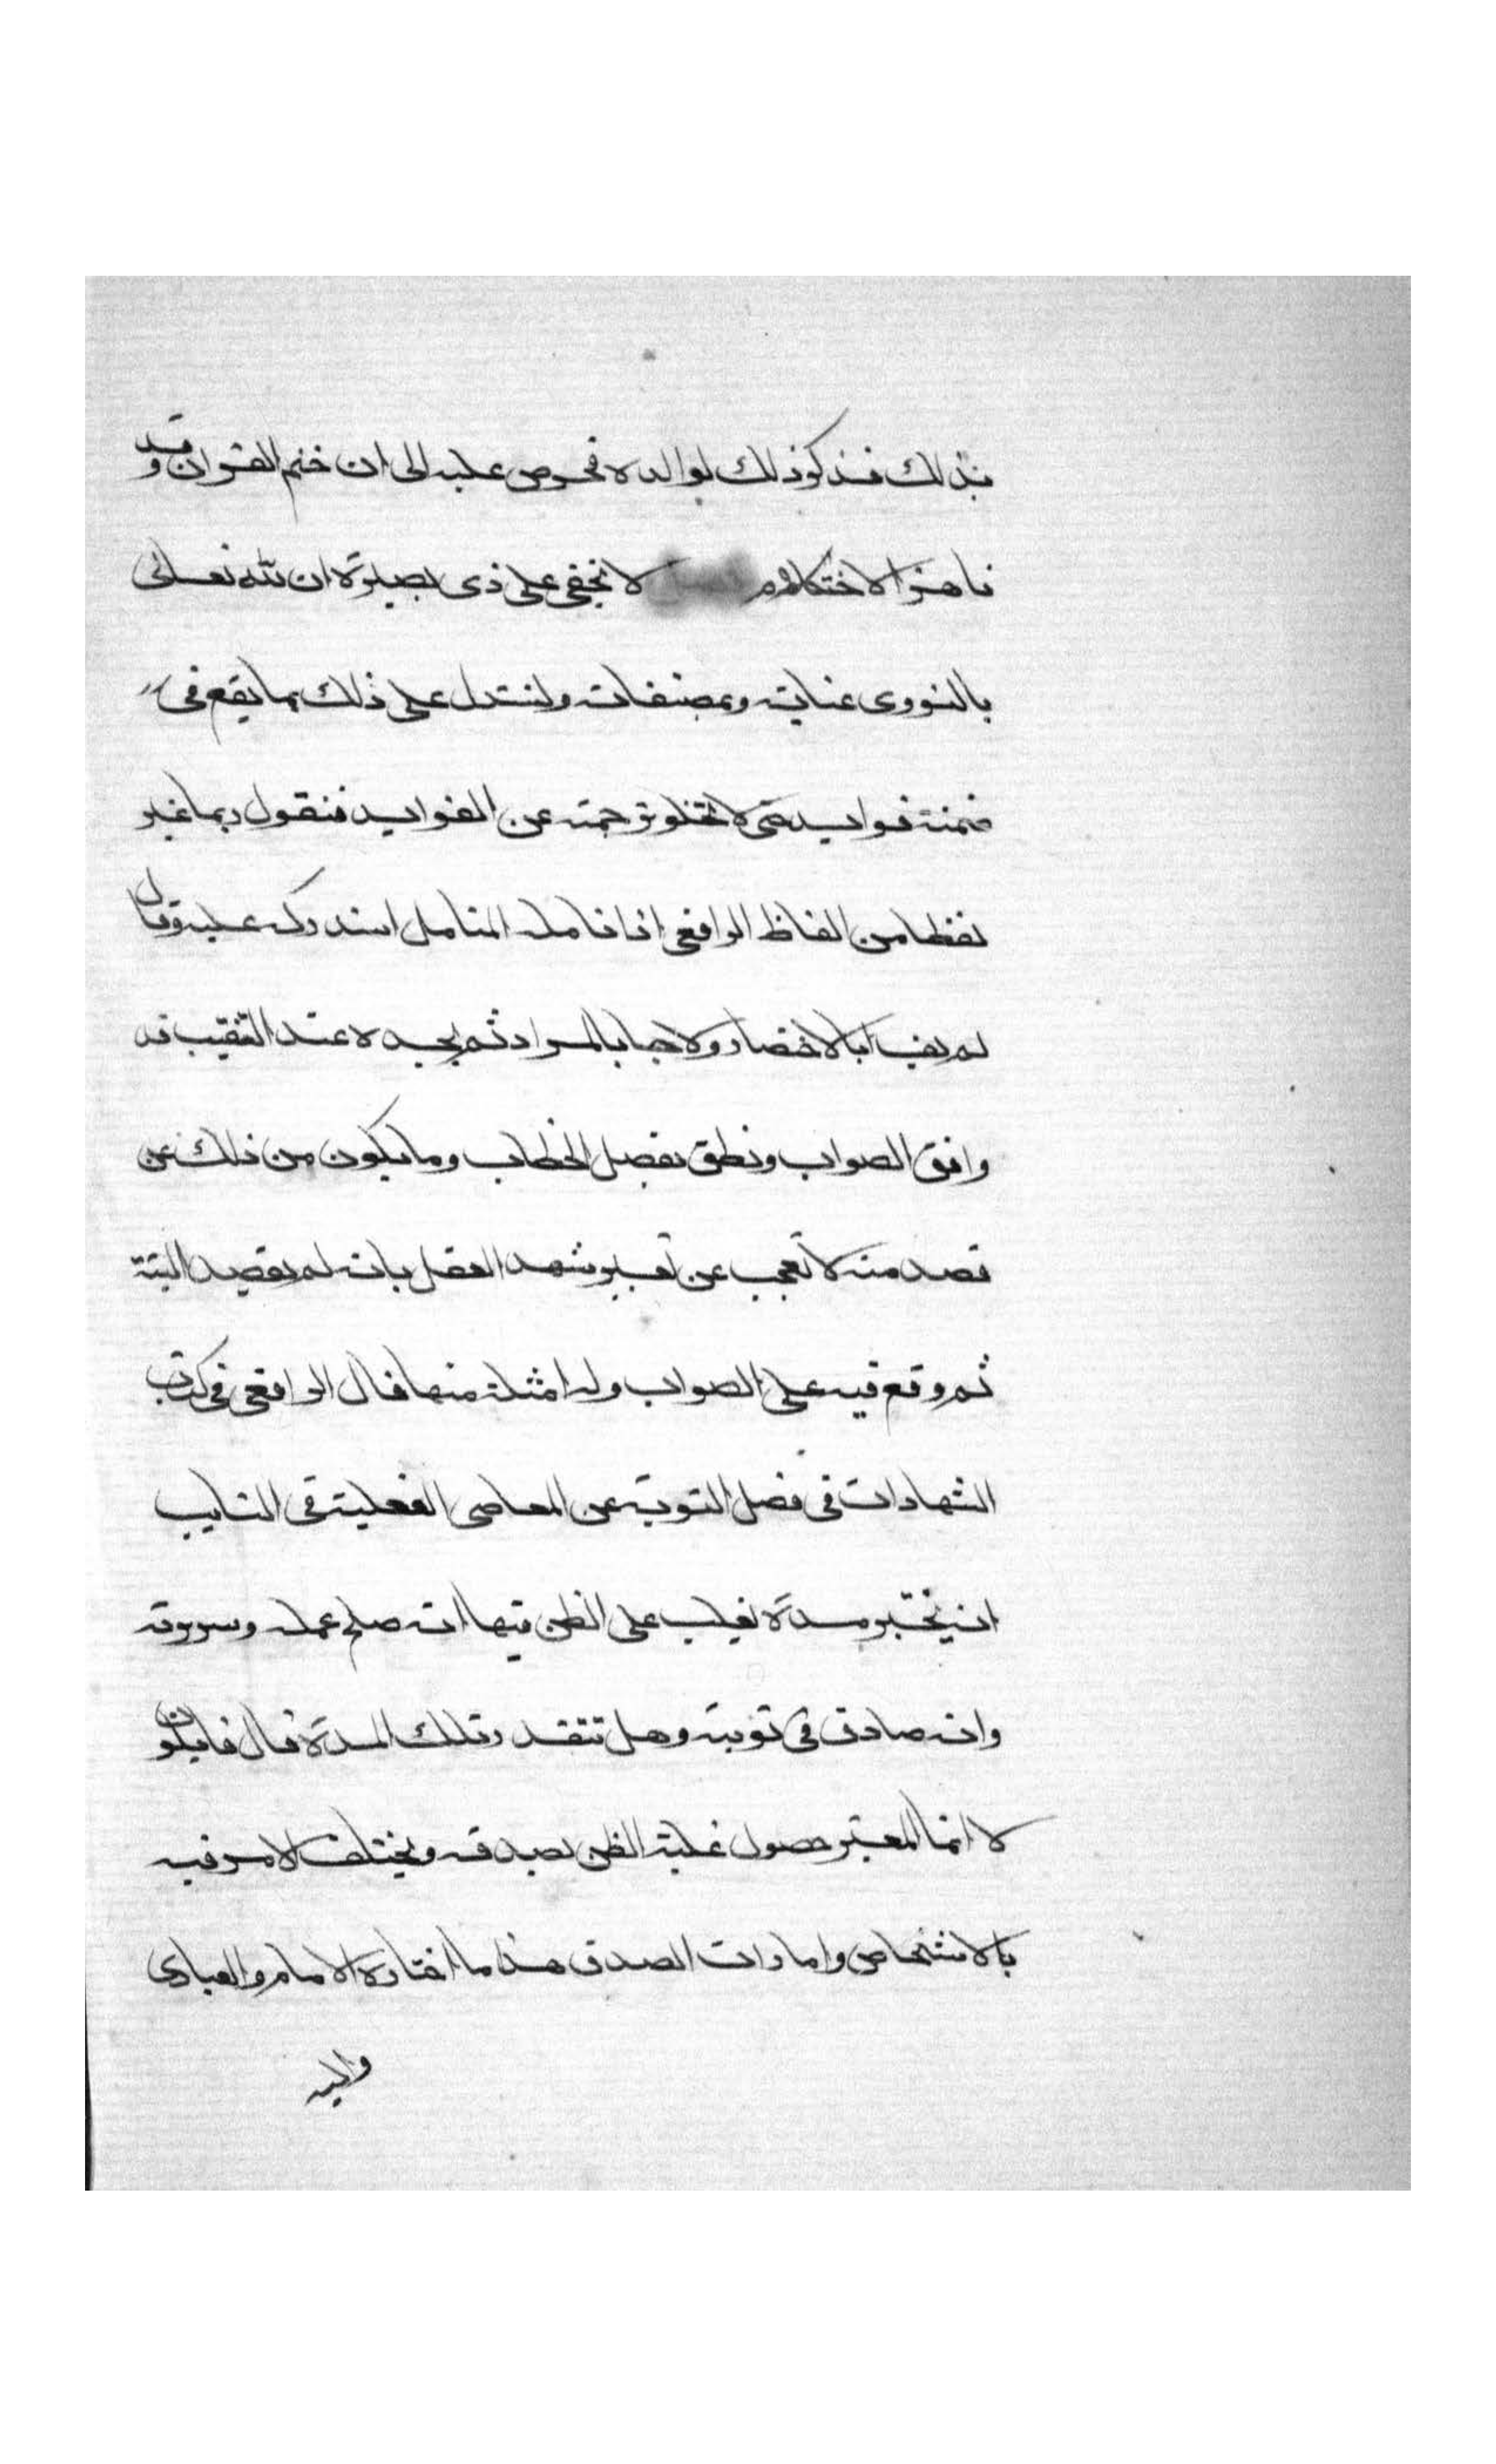 بذلك فذكر ذلك لوالده فحرص عليه الى ان ختم القران وقد
ناهز الاحتلام لا يخفى على ذى بصيرة ان لله تعالى
بالنووى عناية وبمصنفاته ولنستدل على ذلك بما يقع فى
ضمنه فوايد حتى لا تخلو ترجمته عن الفوايد فنقول ربما غير
لفظا من الفاظ الرافعى اذا تامله المتامل استدركه عليه وقال
لم يف بالاختصار ولا جا بالمراد ثم يجده عند التنقيب قد
وافق الصواب ونطق بفصل الخطاب وما يكون من ذلك عن
قصد منه لا تعجب عن تغيير شهد العقل بانه لم يقصد اليته
ثم وقع فيه على الصواب وله امثلة منها قال الرافعى فى كتاب
الشهادات فى فصل التوبة عن المعاصى الفعلية فى التايب
انه يختبر مدة يغلب على الظن فيها انه صلح عمله وسريرته
وانه صادق فى توبته وهل تتقدر تلك المدة قال قايلون
لا انما المعتبر حصول غلبة الظن بصدقه ويختلف الامر فيه
بالاشخاص وامارات الصدق هذا ما اختاره الامام والعبادى
واليه